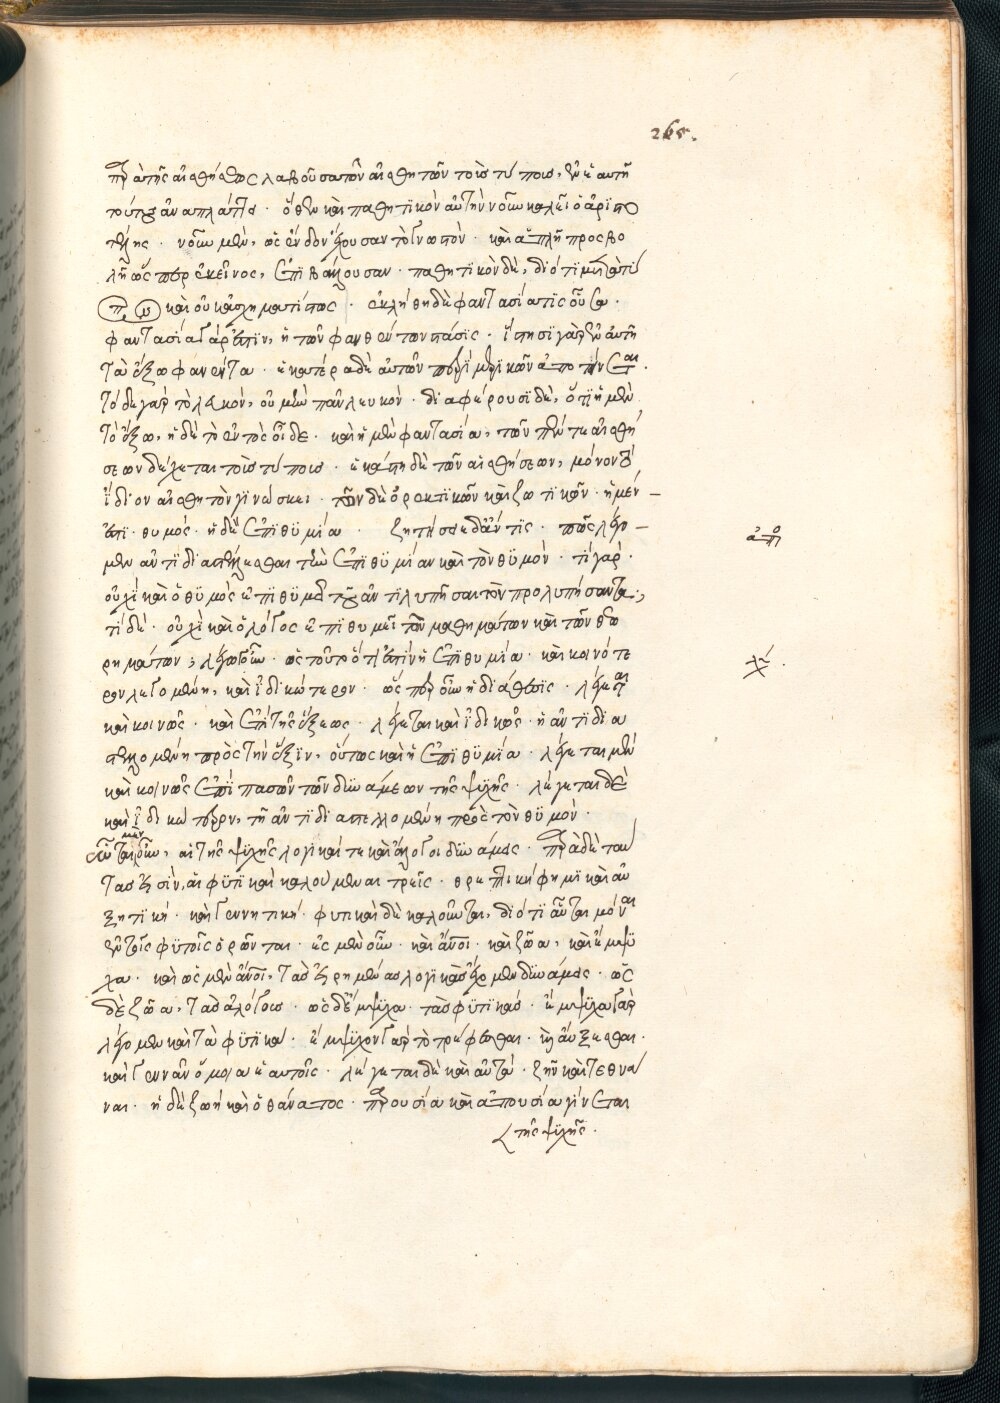 265.
παρὰ τῆς αἰσθήσεως λαβοῦσα τῶν αἰσθητῶν τοὺς τύπους, ἐν ἑαυτῇ
τούτους ἀναπλάττει · ὅθεν καὶ παθητικὸν αὐτὴν νοῦν καλεῖ ὁ ἀριστο
τέλης · νοῦν μὲν, ὡς ἔνδον ἔχουσαν τὸ γνωστὸν · καὶ ἁπλῇ προσβο
λῇ ὥσπερ ἐκεῖνος, ἐπιβάλλουσαν · παθητικὸν δὲ, διότι μετὰ
τύπων καὶ οὐκ ἀσχηματίστως · ἐκλήθη δὲ φαντασία
φαντασία γάρ ἐστιν, ἡ τῶν φανθέντων στάσις · ἵστησι γὰρ ἐν ἑαυτῇ
τὰ ἔξω φανέντα · ἑκατέρα δὲ αὐτῶν περὶ μερικῶν ἀποτείνεται ·
τόδε γὰρ τὸ λευκόν, οὐ μὴν πᾶν λευκόν · διαφέρουσι δὲ, ὅτι ἡ μὲν
τὸ ἔξω, ἡ δὲ τὸ ἐντὸς οἶδε · καὶ ἡ μὲν φαντασία, τῶν πέντε αἰσθή
σεων δέχεται τοὺς τύπους · ἑκάστη δὲ τῶν αἰσθήσεων, μόνον τὸ
ἴδιον αἰσθητὸν γινώσκει · τῶν δὲ ὀρεκτικῶν καὶ ζωτικῶν · ἡ μέν
ἐστι · θυμός · ἡ δὲ ἐπιθυμία · ζητήσειε δ' ἄν τις · πῶς λέγο
μεν ἀντιδιαστέλλεσθαι τὴν ἐπιθυμίαν καὶ τὸν θυμόν · τί γάρ ·
οὐχὶ καὶ ὁ θυμὸς ἐπιθυμεῖ τοῦ ἀντιλυπῆσαι τὸν προλυπήσαντα ;
τί δέ · οὐχὶ καὶ ὁ λόγος ἐπιθυμεῖ τῶν μαθημάτων καὶ τῶν θεω
ρημάτων ; λέγω οὖν · ὡς τοῦτο ὅτι ἐστὶν ἡ ἐπιθυμία · καὶ κοινότε
ρον λεγομένη, καὶ ἰδικώτερον · ὥσπερ οὖν ἡ διάθεσις · λέγεται
καὶ κοινῶς · καὶ ἐπὶ τῆς ἕξεως · λέγεται καὶ ἰδικῶς · ἡ ἀντιδια
στελλομένη πρὸς τὴν ἕξιν, οὕτως καὶ ἡ ἐπιθυμία · λέγεται μὲν
καὶ κοινῶς ἐπὶ πασῶν τῶν δυνάμεων τῆς ψυχῆς · λέγεται δὲ
καὶ ἰδικώτερον, τῇ ἀντιδιαστελλομένη πρὸς τὸν θυμόν ·
αὗται μὲν οὖν, αἱ τῆς ψυχῆς λογικαί τε καὶ ἄλογοι δυνάμεις · παρὰ δὲ ταύ
τας εἰσὶν, αἱ φυτικαὶ καλούμεναι τρεῖς · θρεπτικὴ φημὶ καὶ αὐ
ξητική · καὶ γεννητική · φυτικαὶ δὲ καλοῦνται, διότι αὗται μόναι
ἐν τοῖς φυτοῖς ὁρῶνται · ὡς μὲν οὖν · καὶ ἄνθρωποι · καὶ ζῷα, καὶ ἔμψυ
χα · καὶ ὡς μὲν ἄνθρωποι, τὰς εἰρημένας λογικὰς ἔχομεν δυνάμεις · ὡς
δὲ ζῷα, τὰς ἀλόγους · ὡς δὲ ἔμψυχα · τὰς φυτικάς · ἔμψυχα γὰρ
λέγομεν καὶ τὰ φυτικά · ἔμψυχον γὰρ τὸ τρέφεσθαι · καὶ αὔξεσθαι ·
καὶ γεννᾶν ὅμοια ἑαυτοῖς · λέγεται δὲ καὶ αὐτά · ζῆν καὶ τεθνά
ναι · ἡ δὲ ζωὴ καὶ ὁ θάνατος · παρουσία καὶ ἀπουσία γίνεται
τῆς ψυχῆς ·